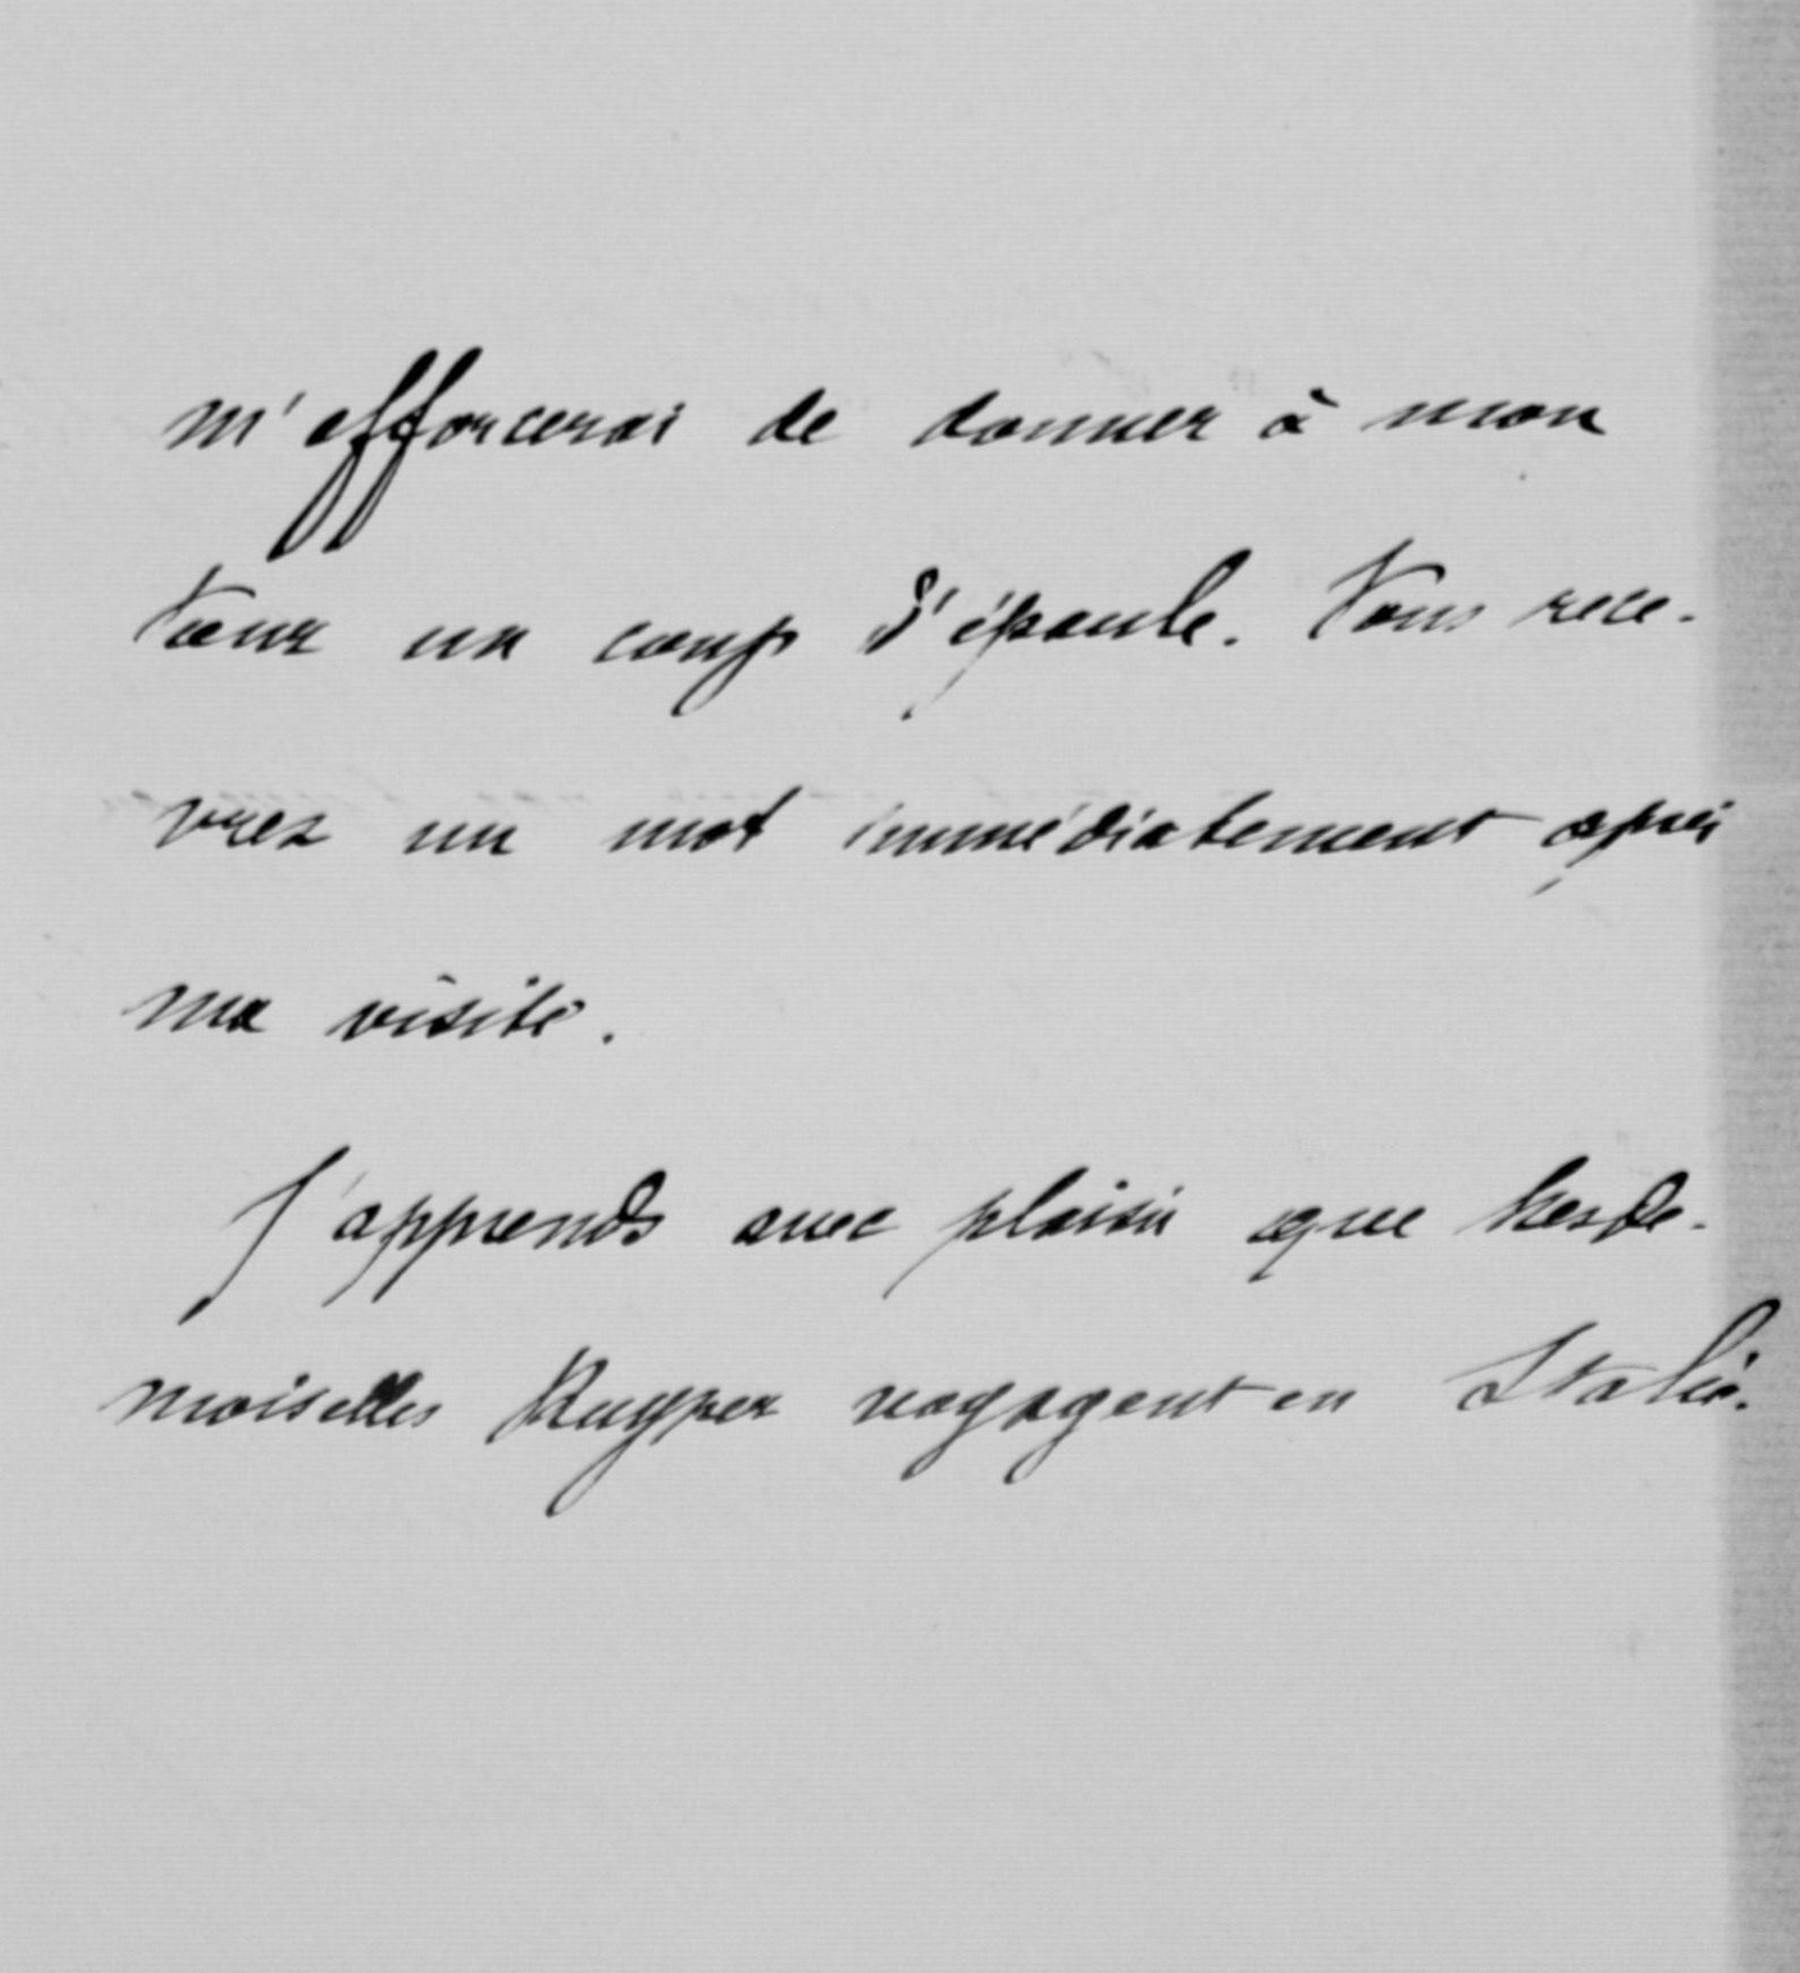 m'efforcerai de donner à mon
tour un coup d'épaule. Vous rece-
vrez un mot immédiatement après
ma visite.
J'apprends avec plaisir que Mesde-
moiselles Kuyper voyagent en Italie.